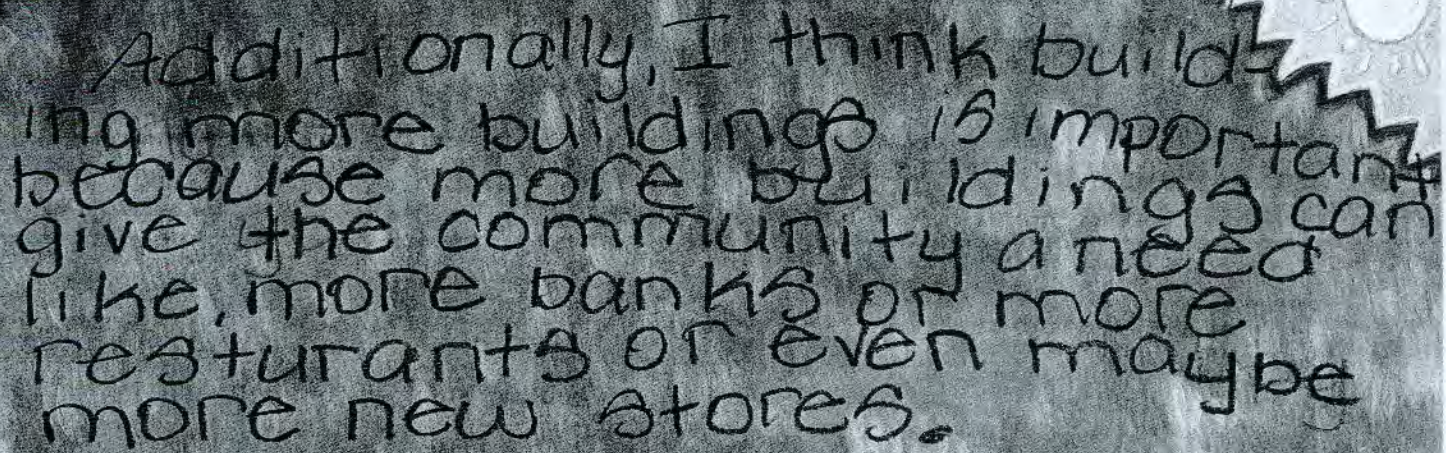 Additionally, I think build-
ing more buildings is important
because more buildings can
give the community a need
like, more banks or more
resturants or even maybe
more new stores.